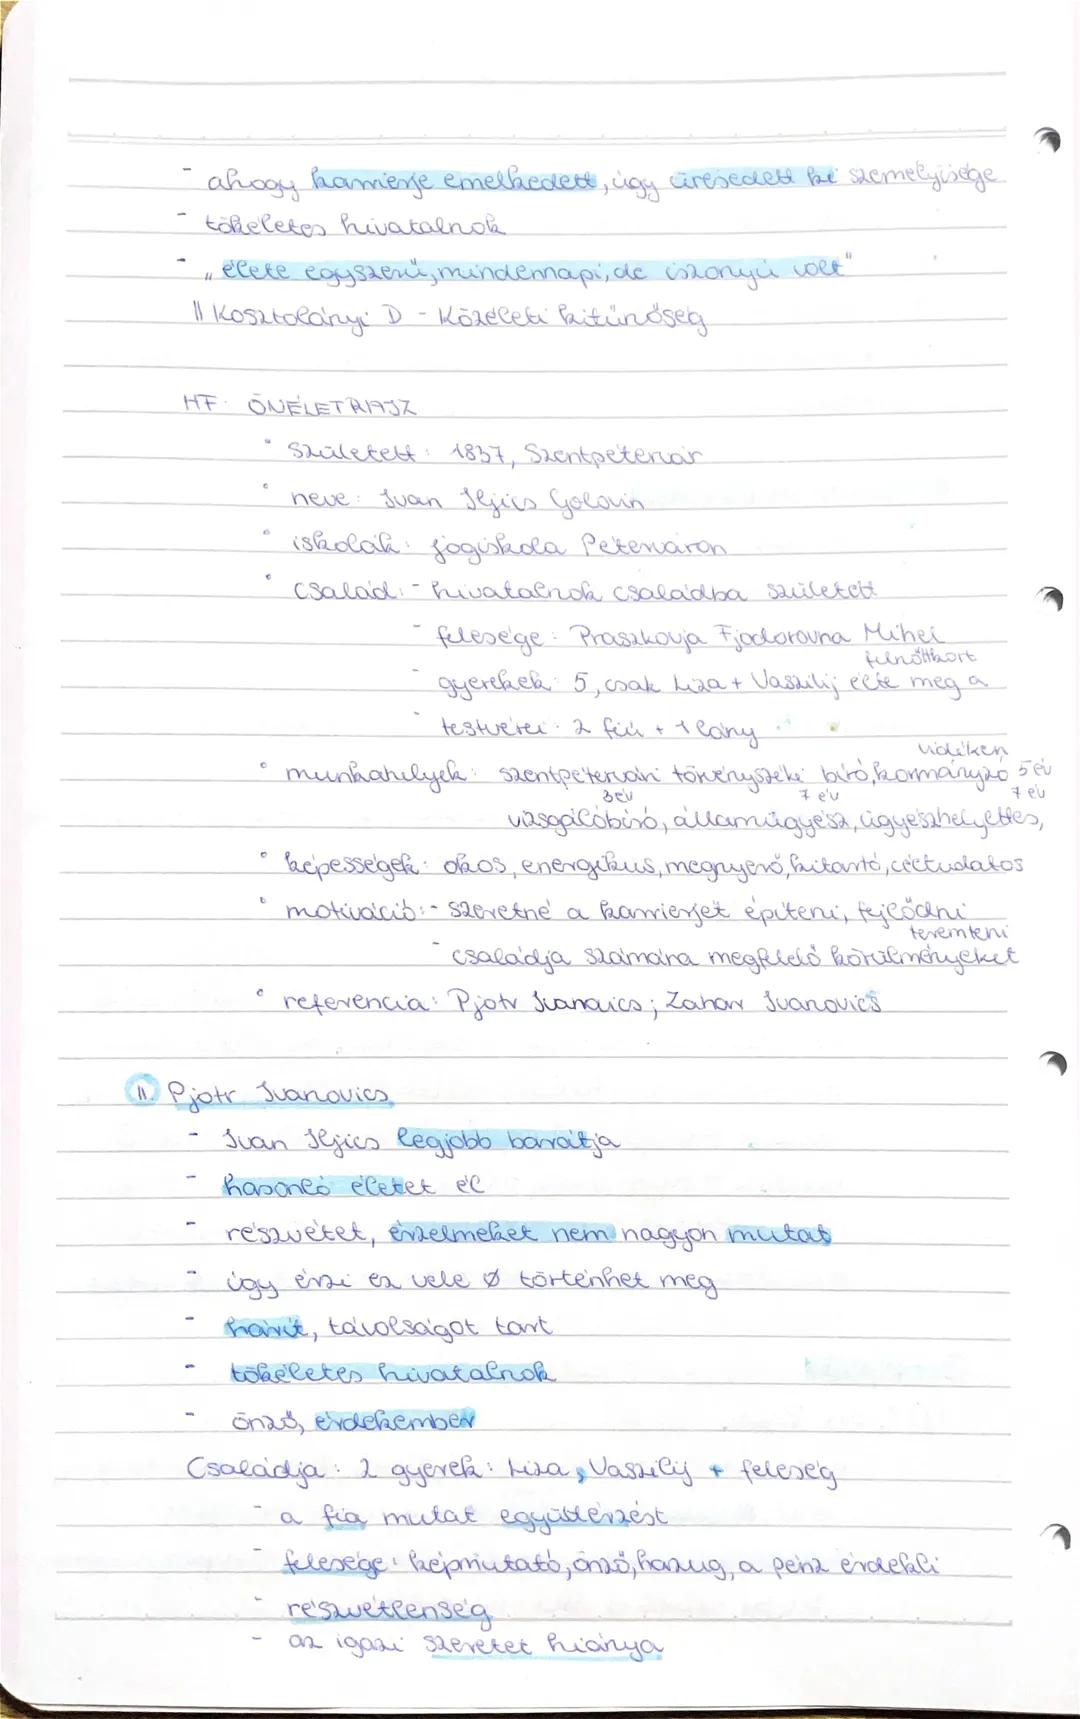 - ahogy karrierje emelkedett, úgy üresedett ki személyisége
- tökéletes hivatalnok
- „élete egyszerű, mindennapi, de iszonyú volt"
|| Kosztolányi D - Közéleti kitűnőség
HF: ÖNÉLETRAJZ
• született: 1837, Szentpétervár
• neve: Ivan Iljics Golovin
• iskolák: jogiskola Péterváron
• család: - hivatalnok családba született
- felesége: Praszkovja Fjodorovna Mihel
felnőttkort
- gyerekek: 5, csak Liza + Vaszilij élte meg a
- testvérei: 2 fiú + 1 lány
vidéken
• munkahelyek: szentpétervári törvényszéki bíró, kormányzó 5 év
3 év 7 év 7 év
vizsgálóbíró, államügyész, ügyészhelyettes,
• képességek: okos, energikus, megnyerő, kitartó, céltudatos
• motiváció: - szeretné a karrierjét építeni, fejlődni
teremteni
- családja számára megfelelő körülményeket
• referencia: Pjotr Ivanovics; Zahar Ivanovics
II. Pjotr Ivanovics
- Ivan Iljics legjobb barátja
- hasonló életet él
- részvétet, érzelmeket nem nagyon mutat
- úgy érzi ez vele Ø történhet meg
- hárít, távolságot tart
- tökéletes hivatalnok
- önző, érdekember
Családja: 2 gyerek: Liza, Vaszilij + feleség
- a fia mutat együttérzést
- felesége: képmutató, önző, hazug, a pénz érdekli
- részvétlenség
- az igazi szeretet hiánya